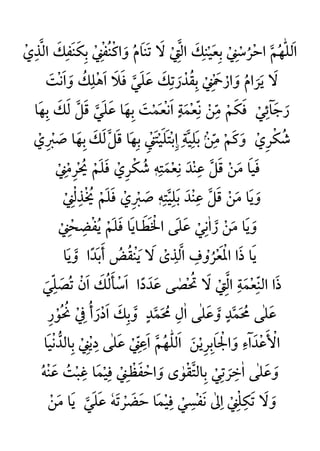 اَللّٰهُمَّ احْرُسْنِيْ بِعَيْنِكَ الَّتِيْ لَا تَنَامُ وَاكْنُفْنِيْ بِكَنَفِكَ الَّذِيْ
لَا يَرَامُ وَارْحَمْنِيْ بِقُدْرَتِكَ عَلَيَّ فَلَا اَهْلِكُ وَاَنْتَ
رَجَآئِيْ فَكَمْ مِّنْ نِّعْمَةٍ اَنْعَمْتَ بِهَا عَلَيَّ قَلَّ لَكَ بِهَا
شُكْرِيْ وَكَمْ مِّنْ بَلِيَّةٍ إِبْتَلَيْتَنِيْ بِهَا قَلَّ لَكَ بِهَا صَبْرِيْ
فَيَا مَنْ قَلَّ عِنْدَ نِعْمَتِهِ شُكْرِيْ فَلَمْ يَحْرِمْنِيْ
وَيَا مَنْ قَلَّ عِنْدَ بَلِيَّتِهِ صَبْرِيْ فَلَمْ يَخْذِلْنِيْ
وَيَا مَنْ رَّاٰنِيْ عَلَى الْخَطَايَا فَلَمْ يُفْضِحْنِيْ
يَا ذَا الْمَعْرُوْفِ الَّذِيْ لَا يَنْقُضُ أَبَدًا وَّيَا
ذَا النِّعْمَةِ الَّتِيْ لَا تُحْصٰى عَدَدًا اَسْأَلُكَ اَنْ تُصَلِّيَ
عَلٰى مُحَمَّدٍ وَّعَلٰى اٰلِ مُحَمَّدٍ وَّبِكَ اَدْرَأُ فِيْ نُحُوْرِ
الْأَعْدَآءِ وَالْجَبَابِرِيْنَ اَللّٰهُمَّ اَعِنِّيْ عَلٰى دِيْنِيْ بِالدُّنْيَا
وَعَلٰى اٰخِرَتِيْ بِالتَّقْوٰى وَاحْفَظْنِيْ فِيْمَا غِبْتُ عَنْهُ
وَلَا تَكِلْنِيْ اِلٰى نَفْسِيْ فِيْمَا حَضَرْتَهٗ عَلَيَّ يَا مَنْ